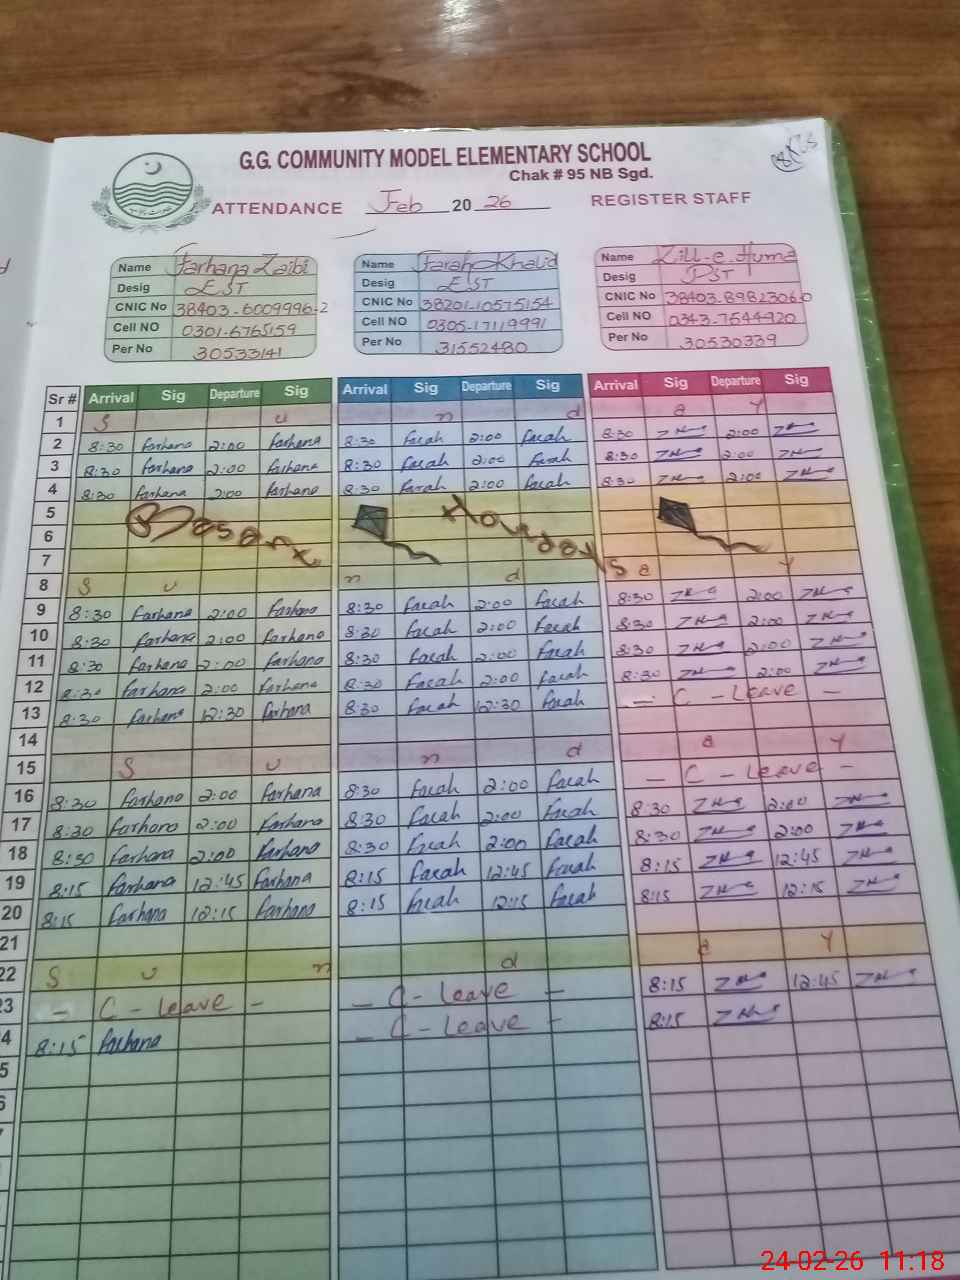 G.G. COMMUNITY MODEL ELEMENTARY SCHOOL
Chak # 95 NB Sgd.
ATTENDANCE Feb 20 26 REGISTER STAFF
Name Farhana Zaibi
Desig EST
CNIC No 38403-6009996-2
Cell NO 0301-6765159
Per No 30533141
Name Farah Khalid
Desig EST
CNIC No 38201-10575154
Cell NO 0305-17119991
Per No 31552480
Name Zill-e-Huma
Desig PST
CNIC No 38403-8982306-0
Cell NO 0343-7644920
Per No 30530339
Sr # Arrival Sig Departure Sig Arrival Sig Departure Sig Arrival Sig Departure Sig
1 S u n d a y
2 8:30 Farhana 2:00 Farhana 8:30 Farah 2:00 Farah 8:30 2:00
3 8:30 Farhana 2:00 Farhana 8:30 Farah 2:00 Farah 8:30 2:00
4 8:30 Farhana 2:00 Farhana 8:30 Farah 2:00 Farah 8:30 2:00
5
6 Basant Holidays
7
8 S u n d a y
9 8:30 Farhana 2:00 Farhana 8:30 Farah 2:00 Farah 8:30 2:00
10 8:30 Farhana 2:00 Farhana 8:30 Farah 2:00 Farah 8:30 2:00
11 8:30 Farhana 2:00 Farhana 8:30 Farah 2:00 Farah 8:30 2:00
12 8:30 Farhana 2:00 Farhana 8:30 Farah 2:00 Farah 8:30 2:00
13 8:30 Farhana 12:30 Farhana 8:30 Farah 12:30 Farah - C - Leave -
14
15 S u n d a y
16 8:30 Farhana 2:00 Farhana 8:30 Farah 2:00 Farah - C - Leave -
17 8:30 Farhana 2:00 Farhana 8:30 Farah 2:00 Farah 8:30 2:00
18 8:30 Farhana 2:00 Farhana 8:30 Farah 2:00 Farah 8:30 2:00
19 8:15 Farhana 12:45 Farhana 8:15 Farah 12:45 Farah 8:15 12:45
20 8:15 Farhana 12:15 Farhana 8:15 Farah 12:15 Farah 8:15 12:15
21
22 S u n d a y
3 - C - Leave - - C - Leave - 8:15 12:45
4 8:15 Farhana - C - Leave - 8:15
5
24-02-26 11:18